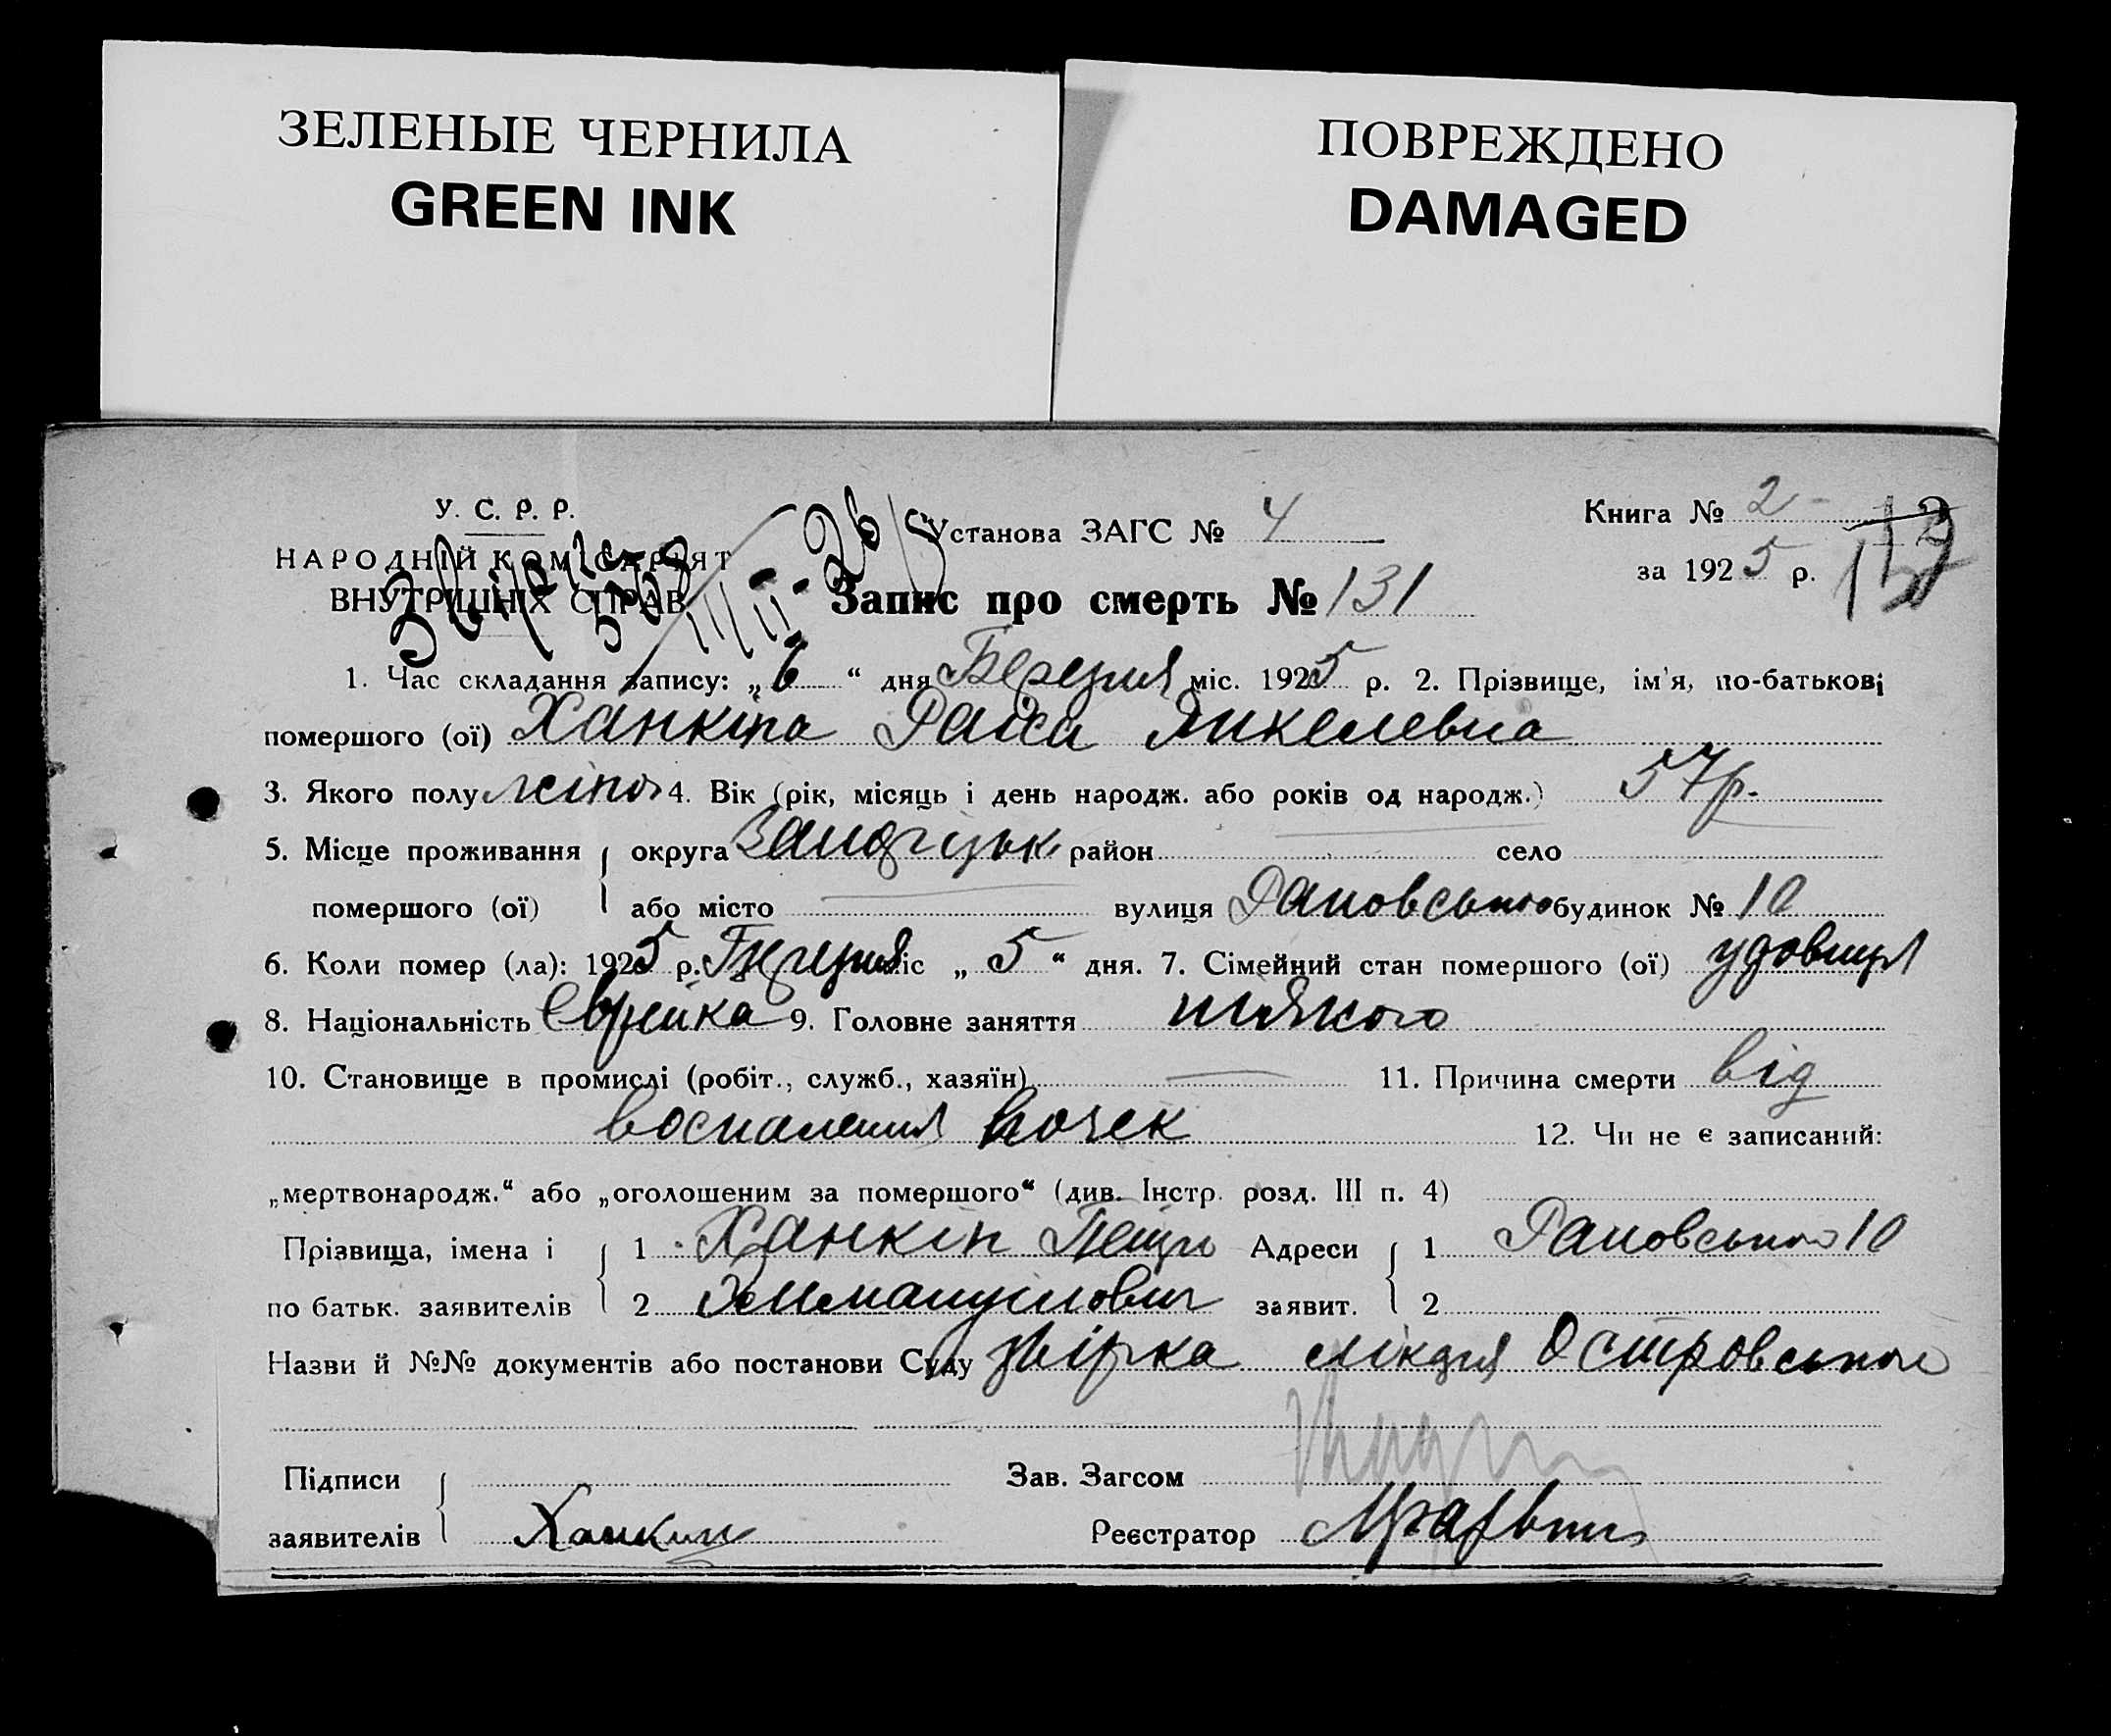 ЗЕЛЕНЫЕ ЧЕРНИЛА
GREEN INK
ПОВРЕЖДЕНО
DAMAGED
У. С. Р. Р.
НАРОДНІЙ КОМІСАРІЯТ
ВНУТРІШНІХ СПРАВ
Установа ЗАГС № 4
Книга № 2
за 1925 р.
Запис про смерть № 131
1. Час складання запису: „6“ дня Березня міс. 1925 р. 2. Прізвище, ім'я, по-батькові
помершого (ої) Ханкіна Раїса Янкелевна
3. Якого полу жіноч 4. Вік (рік, місяць і день народж. або років од народж.) 57 р.
5. Місце проживання округа район село
помершого (ої) або місто вулиця будинок № 10
6. Коли помер (ла): 1925 р. Березня міс „5“ дня. 7. Сімейний стан помершого (ої) удовиця
8. Національність Єврейка 9. Головне заняття ніякого
10. Становище в промислі (робіт., служб., хазяїн) — 11. Причина смерти від
воспаления почек 12. Чи не є записаний:
„мертвонародж.“ або „оголошеним за помершого“ (див. Інстр. розд. III п. 4)
Прізвища, імена і 1 Ханкін Адреси 1 10
по батьк. заявителів 2 Эммануилович заявит. 2
Назви й №№ документів або постанови Суду лікаря Островського
Підписи Зав. Загсом
заявителів Ханкин Реєстратор